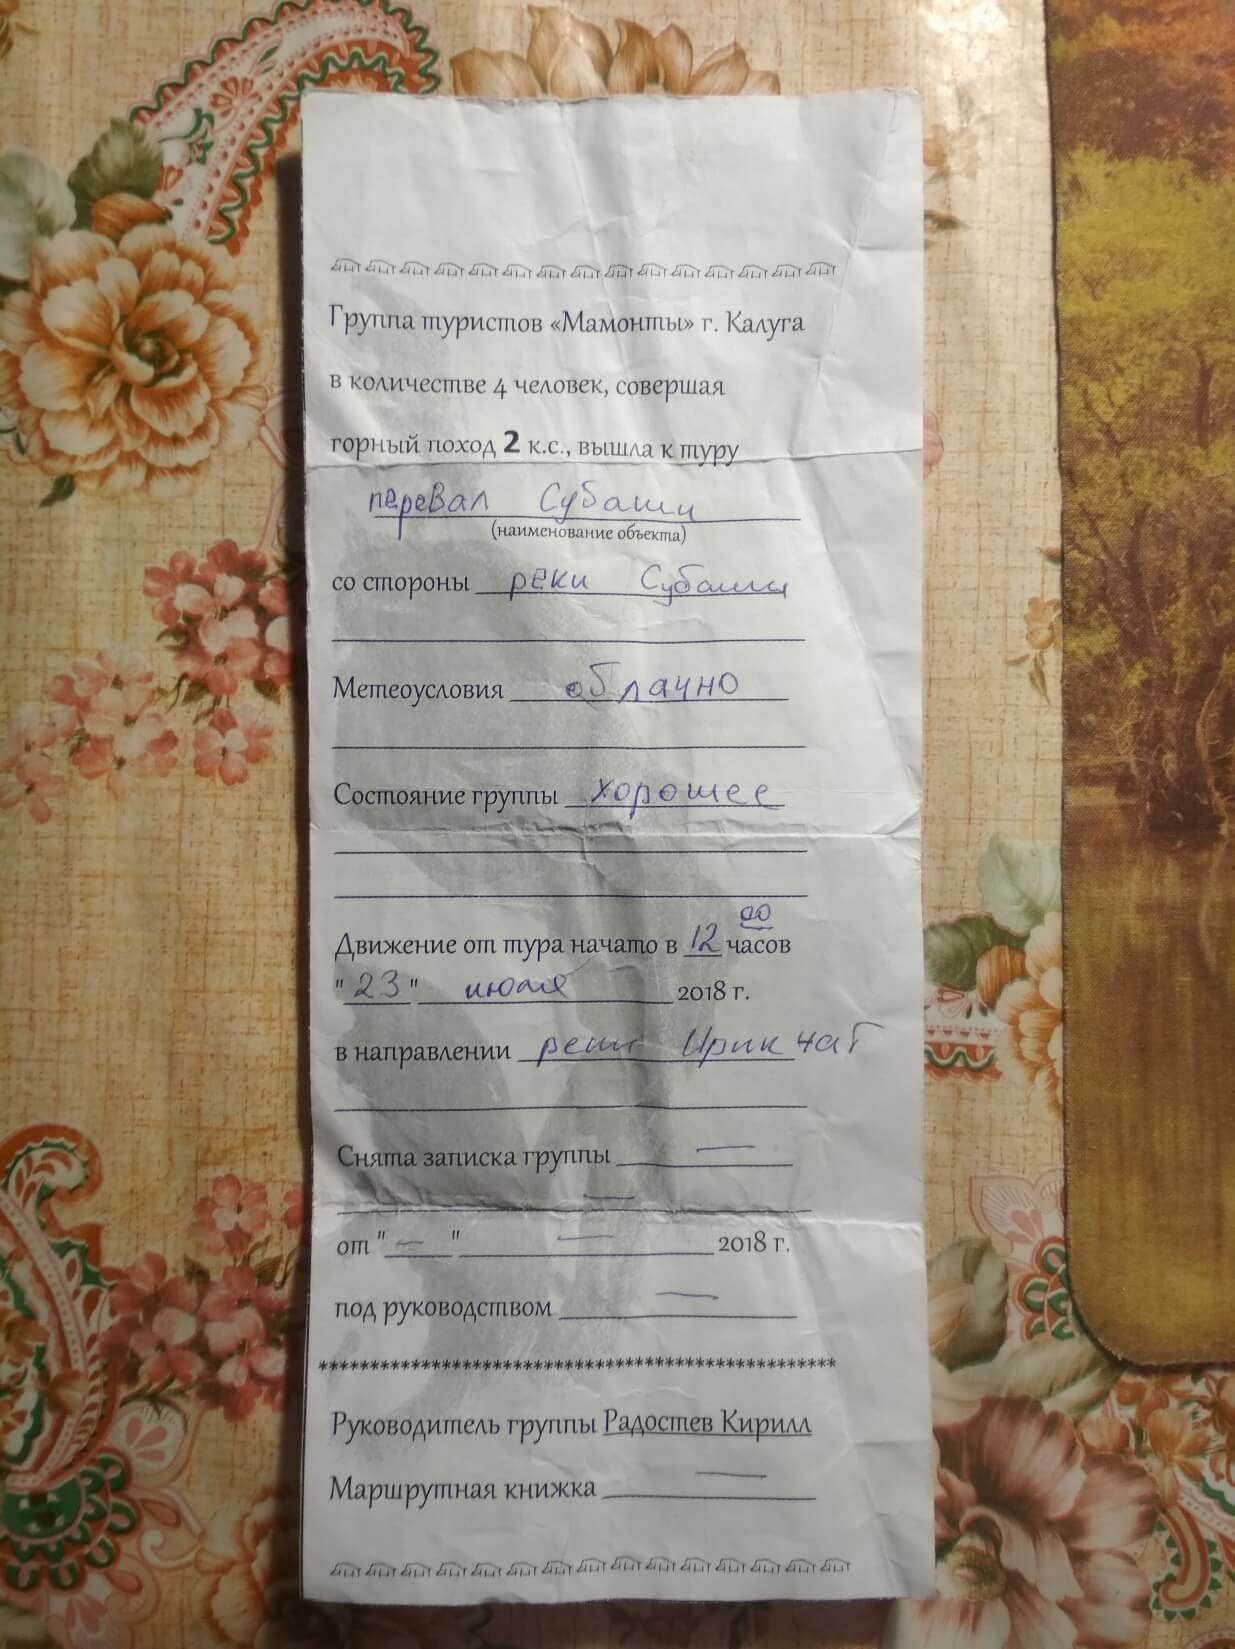 Группа туристов «Мамонты» г. Калуга
в количестве 4 человек, совершая
горный поход 2 к.с., вышла к туру
перевал Субаши
(наименование объекта)
со стороны реки Субаши
Метеоусловия облачно
Состояние группы хорошее
Движение от тура начато в 12 00 часов
"23" июля 2018 г.
в направлении реки Ирик чат
Снята записка группы —
—
от "—" — 2018 г.
под руководством —
**************************************************
Руководитель группы Радостев Кирилл
Маршрутная книжка —